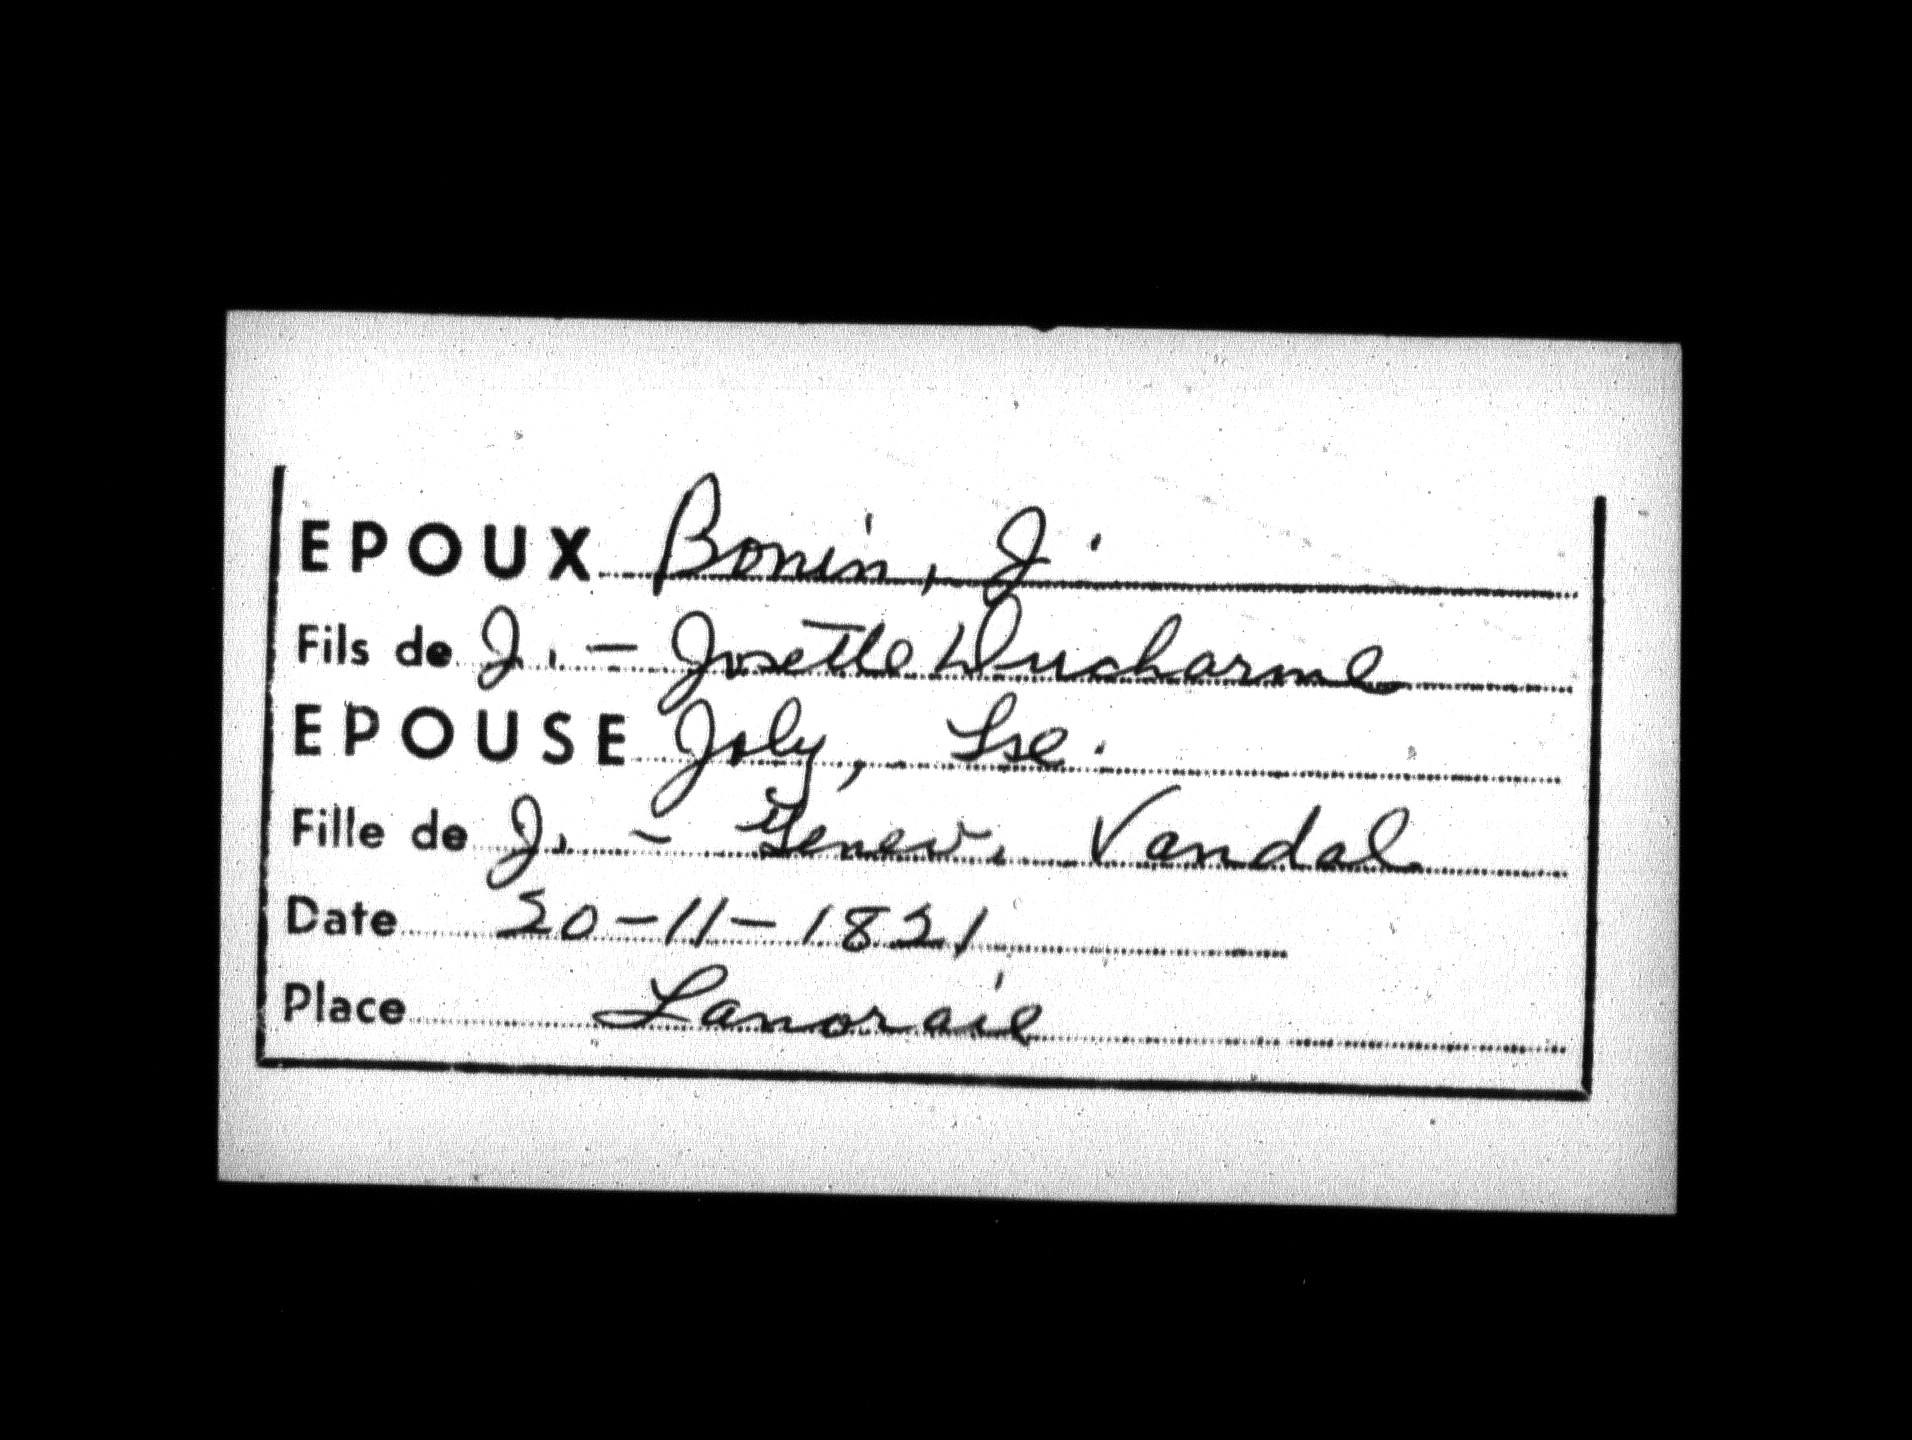 EPOUX Bonin, J.
Fils de J. - Josette Ducharme
EPOUSE Joly, Lse.
Fille de J. - Genev. Vandal
Date 20-11-1821
Place Lanoraie